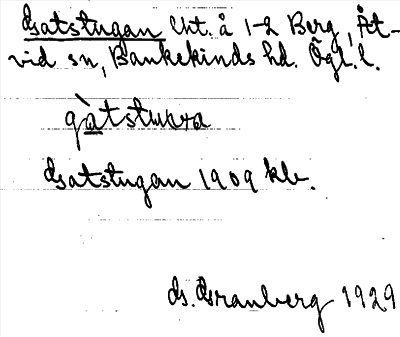 Gatstugan Lht. å 1-2 Berg, Åt-
vid sn, Bankekinds hd. Ögl. l.
gàtstuva
Gatstugan 1909 kb.
G. Granberg 1929